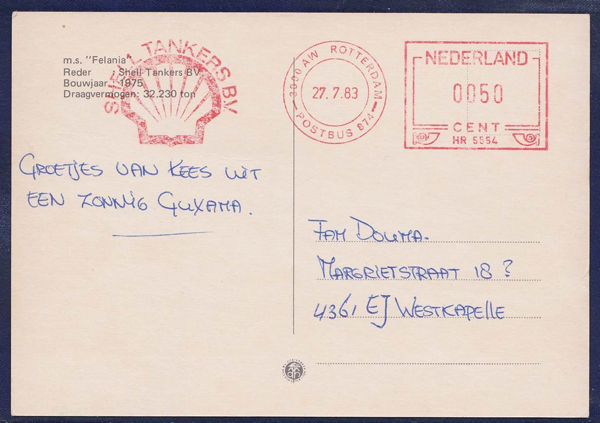 m.s. "Felania"
Reder : Shell Tankers BV
Bouwjaar : 1975
Draagvermogen: 32.230 ton
SHELL TANKERS BV
3000 AW ROTTERDAM
27.7.83
POSTBUS 874
NEDERLAND
0050
CENT
HR 5954
GROETJES VAN KEES UIT
EEN ZONNIG GUXAMA.
FAM DOUMA.
MARGRIETSTRAAT 18 ?
4361 EJ WESTKAPELLE